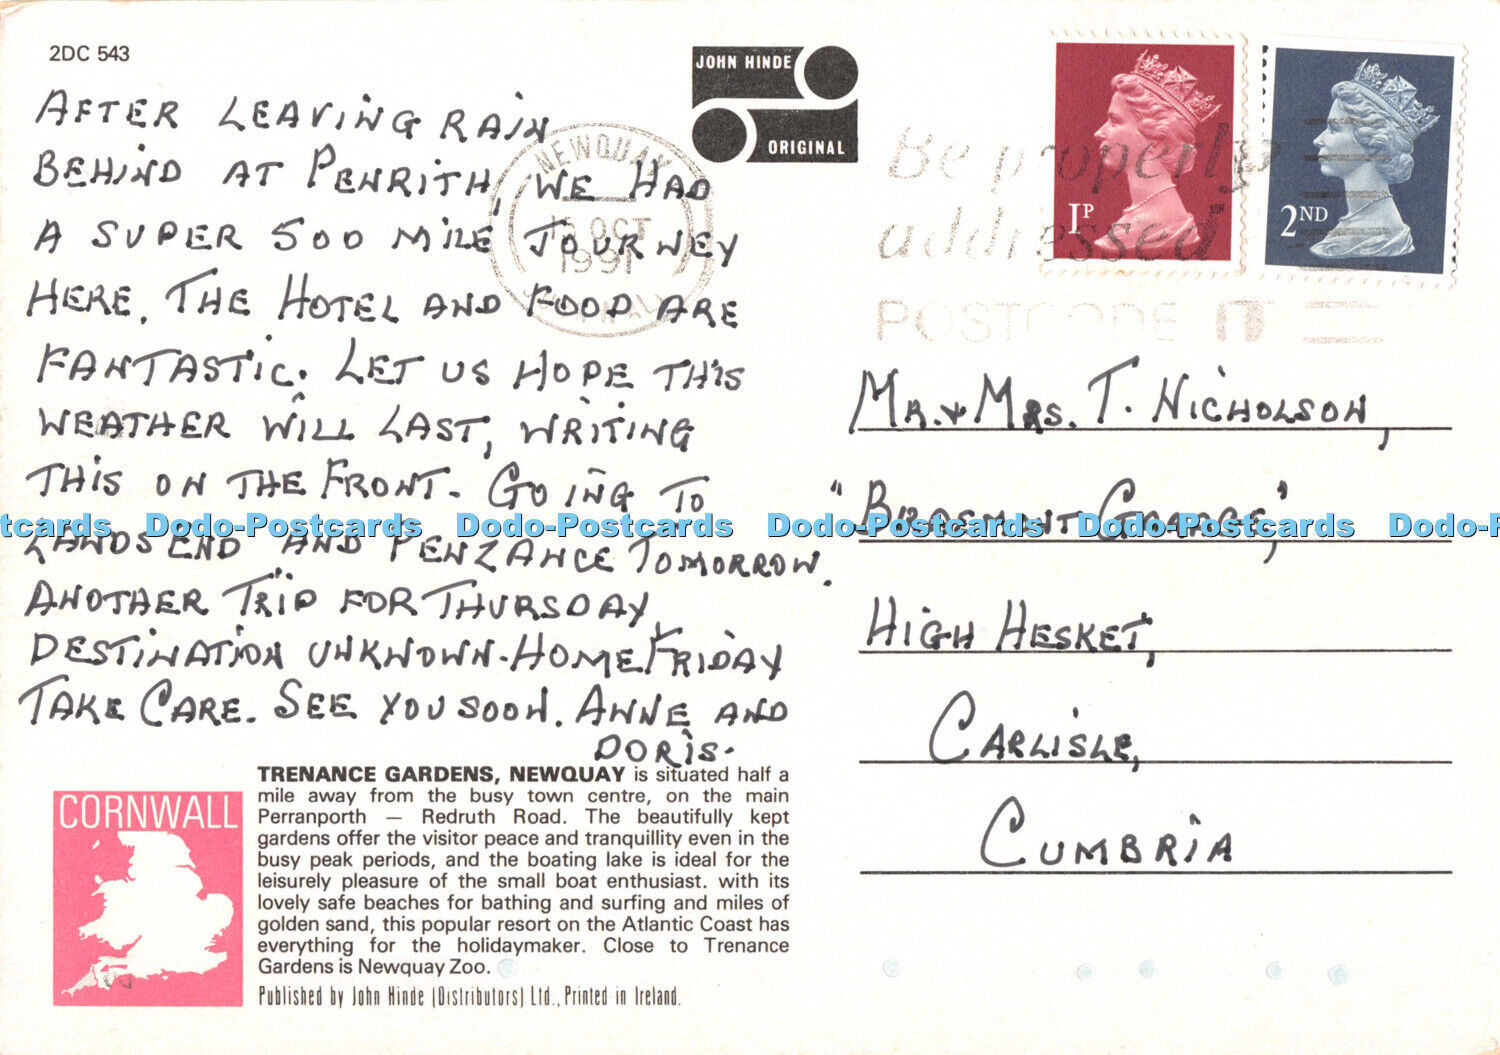 2DC 543
AFTER LEAVING RAIN
BEHIND AT PENRITH, WE HAD
A SUPER 500 MILE JOURNEY
HERE. THE HOTEL AND FOOD ARE
FANTASTIC. LET US HOPE THIS
WEATHER WILL LAST, WRITING
THIS ON THE FRONT. GOING TO
LANDS END AND PENZANCE TOMORROW.
ANOTHER TRIP FOR THURSDAY
DESTINATION UNKNOWN. HOME FRIDAY
TAKE CARE. SEE YOU SOON. ANNE AND
DORIS.
JOHN HINDE
ORIGINAL
NEWQUAY
15 OCT
1991
CORNWALL
Be properly
addressed
POSTCODE IT
1P
2ND
MR. & MRS. T. NICHOLSON,
GRANGE,"
HIGH HESKET,
CARLISLE,
CUMBRIA
Dodo-Postcards Dodo-Postcards Dodo-Postcards Dodo-Postcards
CORNWALL
TRENANCE GARDENS, NEWQUAY is situated half a
mile away from the busy town centre, on the main
Perranporth — Redruth Road. The beautifully kept
gardens offer the visitor peace and tranquillity even in the
busy peak periods, and the boating lake is ideal for the
leisurely pleasure of the small boat enthusiast. with its
lovely safe beaches for bathing and surfing and miles of
golden sand, this popular resort on the Atlantic Coast has
everything for the holidaymaker. Close to Trenance
Gardens is Newquay Zoo.
Published by John Hinde (Distributors) Ltd., Printed in Ireland.